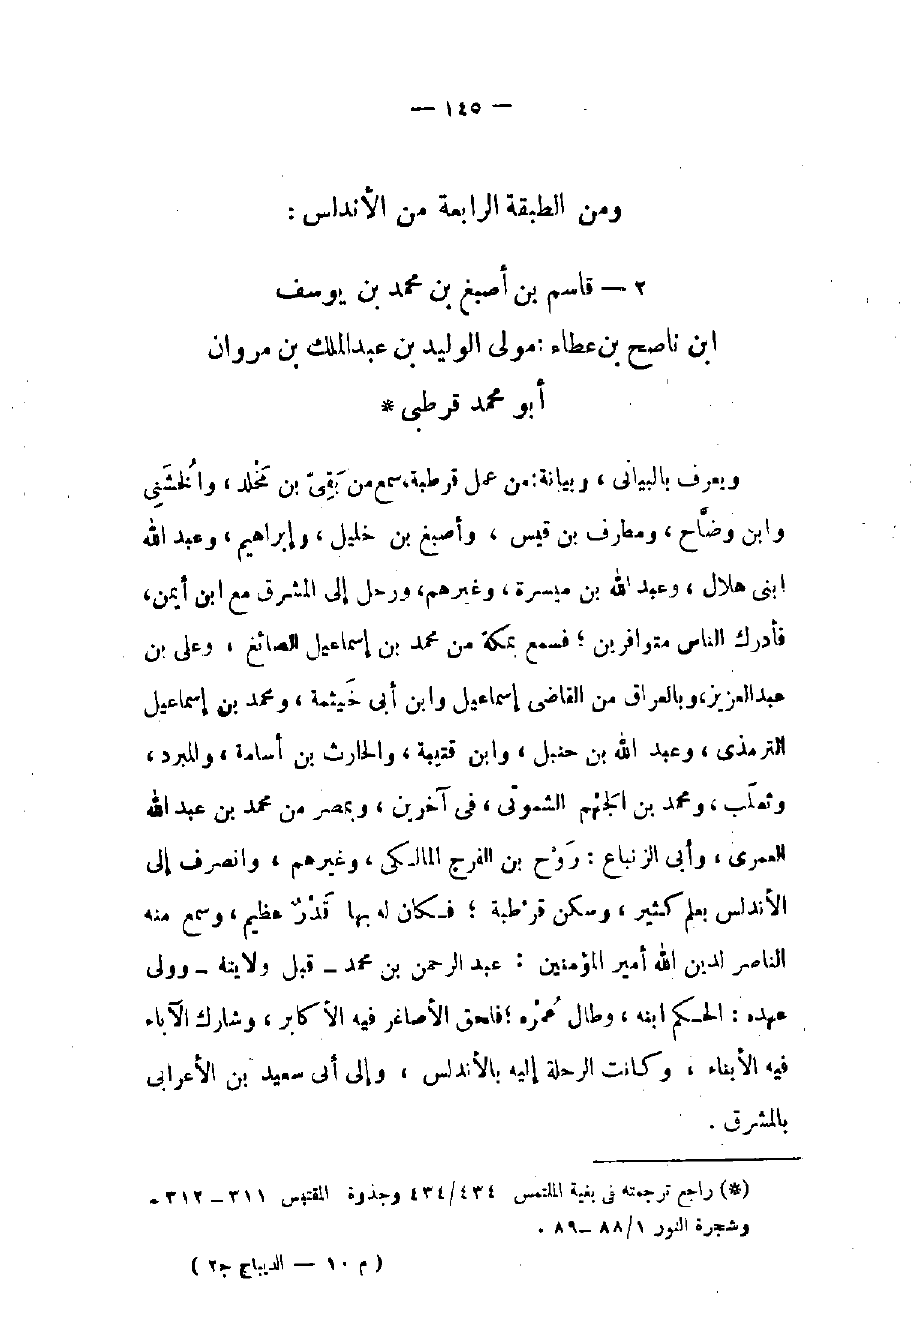 — ١٤٥ —
ومن الطبقة الرابعة من الأندلس :
٢ — قاسم بن أصبغ بن محمد بن يوسف
ابن ناصح بن عطاء : مولى الوليد بن عبد الملك بن مروان
أبو محمد قرطبى *
ويعرف بالبيانى ، وبيانة : من عمل قرطبة . سمع من بَقِىّ بن مَخْلد ، والخُشَنِى
وابن وضّاح ، ومطرف بن قيس ، وأصبغ بن خليل ، وإبراهيم ، وعبد الله
ابنى هلال ، وعبد الله بن ميسرة ، وغيرهم ، ورحل إلى المشرق مع ابن أيمن ،
فأدرك الناس متوافرين ؛ فسمع بمكة من محمد بن إسماعيل الصائغ ، وعلى بن
عبد العزيز ، وبالعراق من القاضى إسماعيل وابن أبى خَيثمة ، ومحمد بن إسماعيل
الترمذى ، وعبد الله بن حنبل ، وابن قتيبة ، والحارث بن أسامة ، والمبرد ،
وثعلَب ، ومحمد بن الجَهْم الشموتى ، فى آخرين ، وبمصر من محمد بن عبد الله
العمرى ، وأبى الزنباع : رَوْح بن الفرج المالكى ، وغيرهم ، وانصرف إلى
الأندلس بعلم كثير ، وسكن قرْطبة ؛ فكان له بها قَدْرٌ عظيم ، وسمع منه
الناصر لدين الله أمير المؤمنين : عبد الرحمن بن محمد – قبل ولايته – وولى
عهده : الحكم ابنه ، وطال عُمرْه ؛ فلحق الأصاغر فيه الأكابر ، وشارك الآباء
فيه الأبناء ، وكانت الرحلة إليه بالأندلس ، وإلى أبى سعيد بن الأعرابى
بالمشرق .
(*) راجع ترجمته فى بغية الملتمس ٤٣٤/٤٣٤ وجذوة المقتبس ٣١١ – ٣١٢ –
وشجرة النور ٨٨/١ – ٨٩ .
( م ١٠ — الديباج ج٢ )